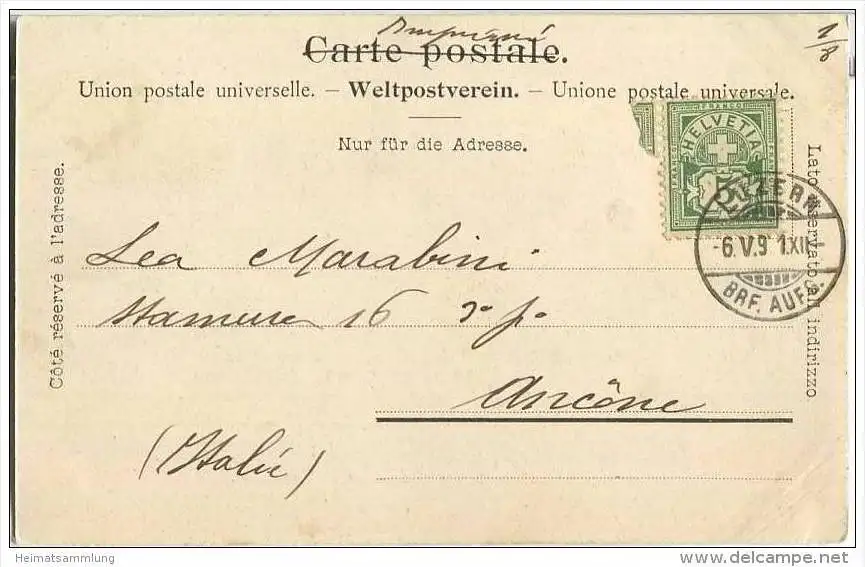 Imprimé
1/8
Carte postale.
Union postale universelle. — Weltpostverein. — Unione postale universale.
Nur für die Adresse.
Côté réservé à l'adresse.
Lato riservato all' indirizzo
FRANCO
HELVETIA
5
LUZERN
-6.V.9 1.XII-
BRF. AUFG.
Lea Marabini
Stamura 16 3º pº
Ancône
(Italie)
Heimatsammlung
www.delcampe.net